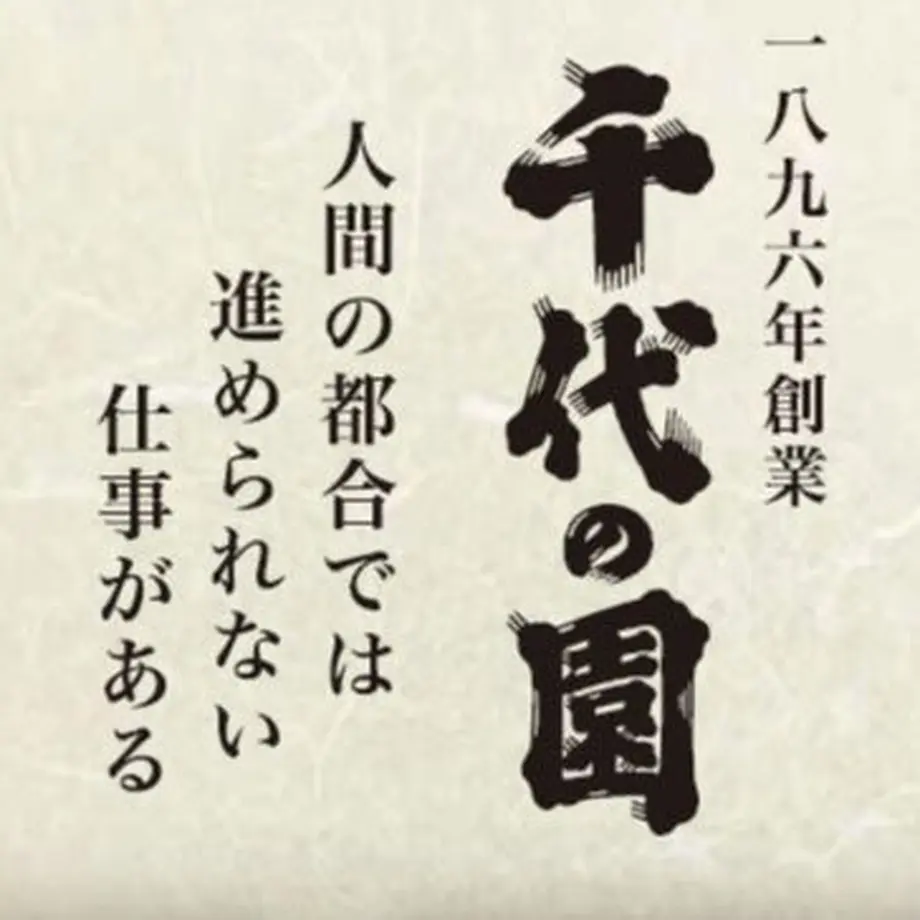 一八九六年創業
千代の園
人間の都合では
進められない
仕事がある